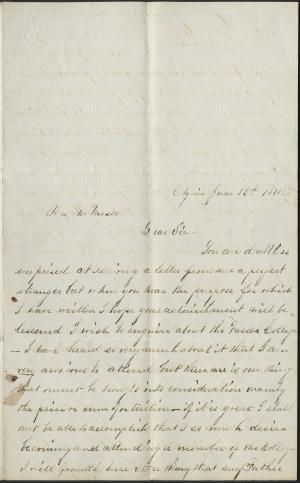 Elgin June 12th 1861.
Mr. Vassar
Dear Sir.
You no doubt be
surprised at receiving a letter from me a perfect
stranger but when you hear the purpose for which
I have written I hope your astonishment will be
lessened. I wish to enquire about the Vassar College
— I have heard so very much about it that I am
very anxious to attend but there are is one thing
that must be brought into consideration namely
the price or sum for tuition — if it is great I shall
not be able to accomplish that I so much desire
becoming and attending a member of the College
I will
sure
thing that my Father